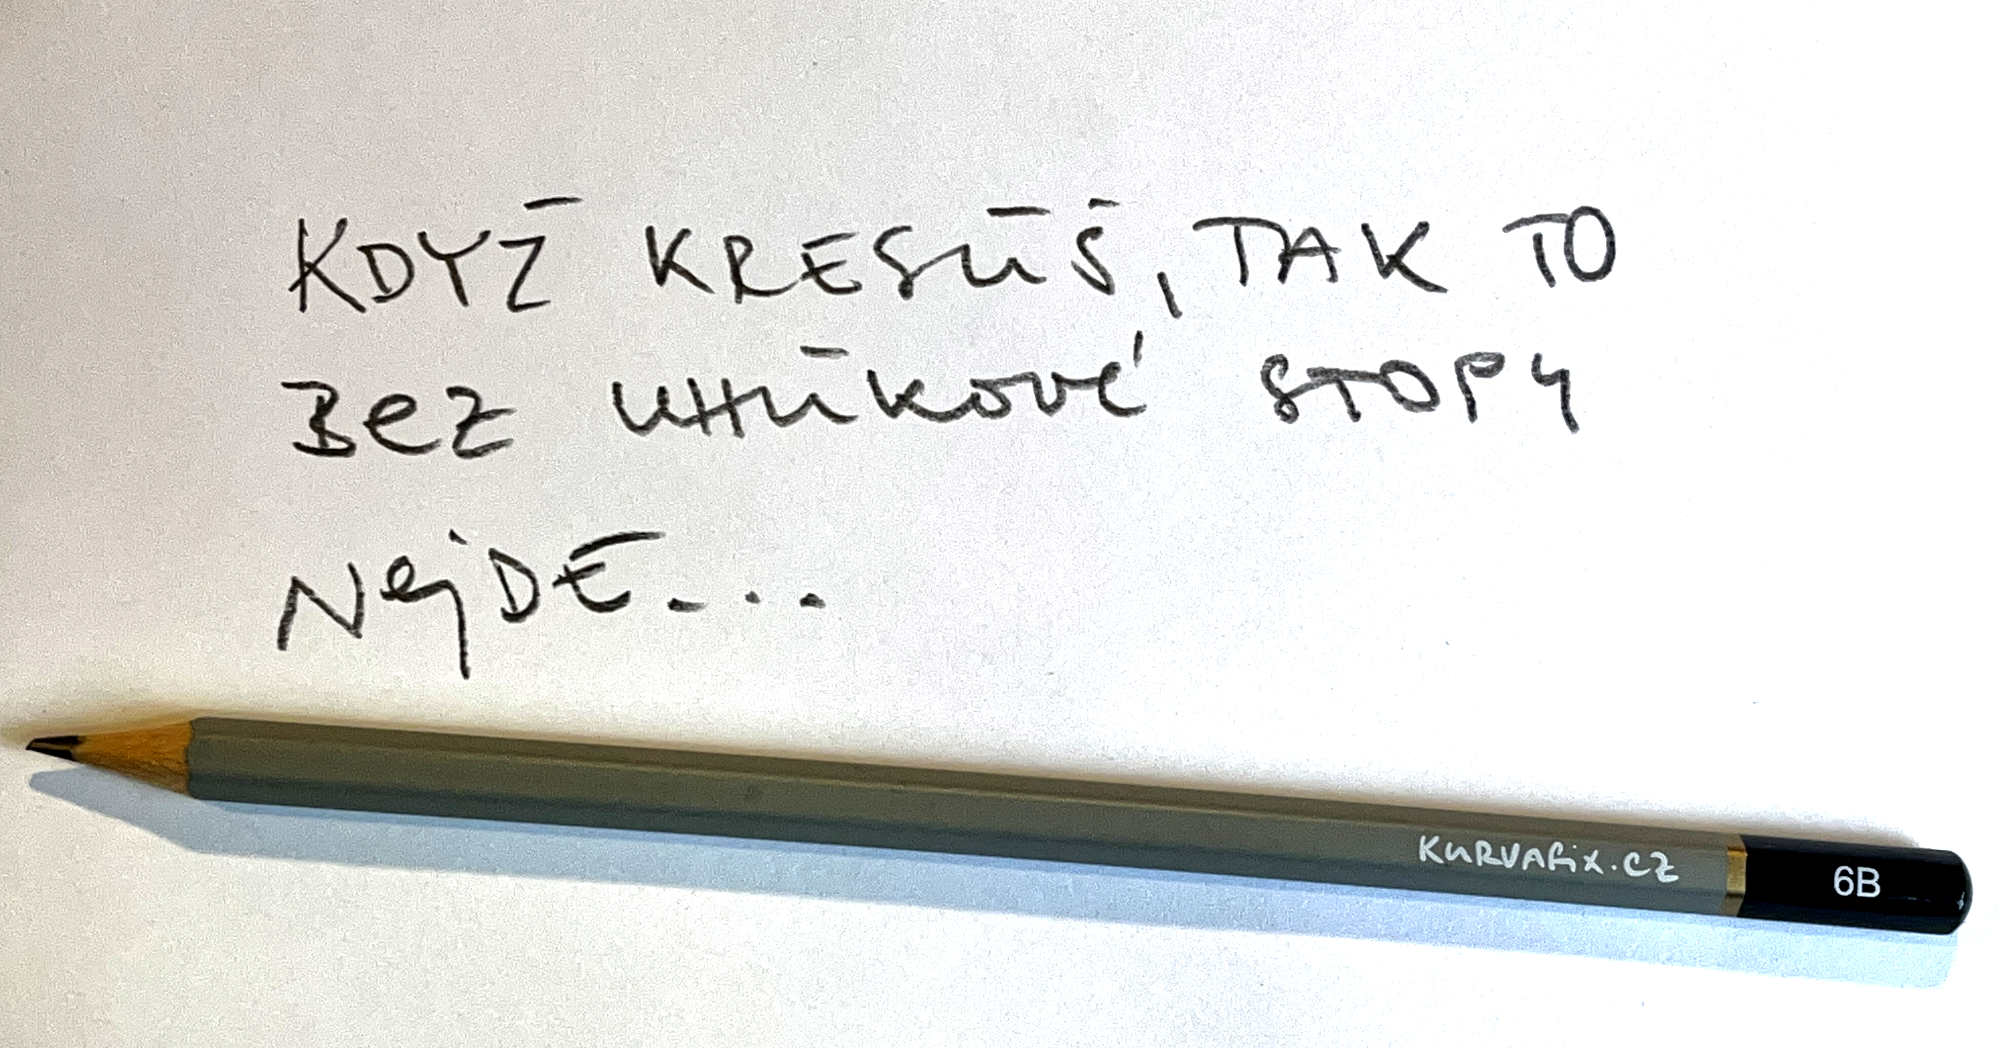 KDYŽ KRESLÍŠ, TAK TO
BEZ UHLÍKOVÉ STOPY
NEJDE...
KURVAFIX.CZ
6B